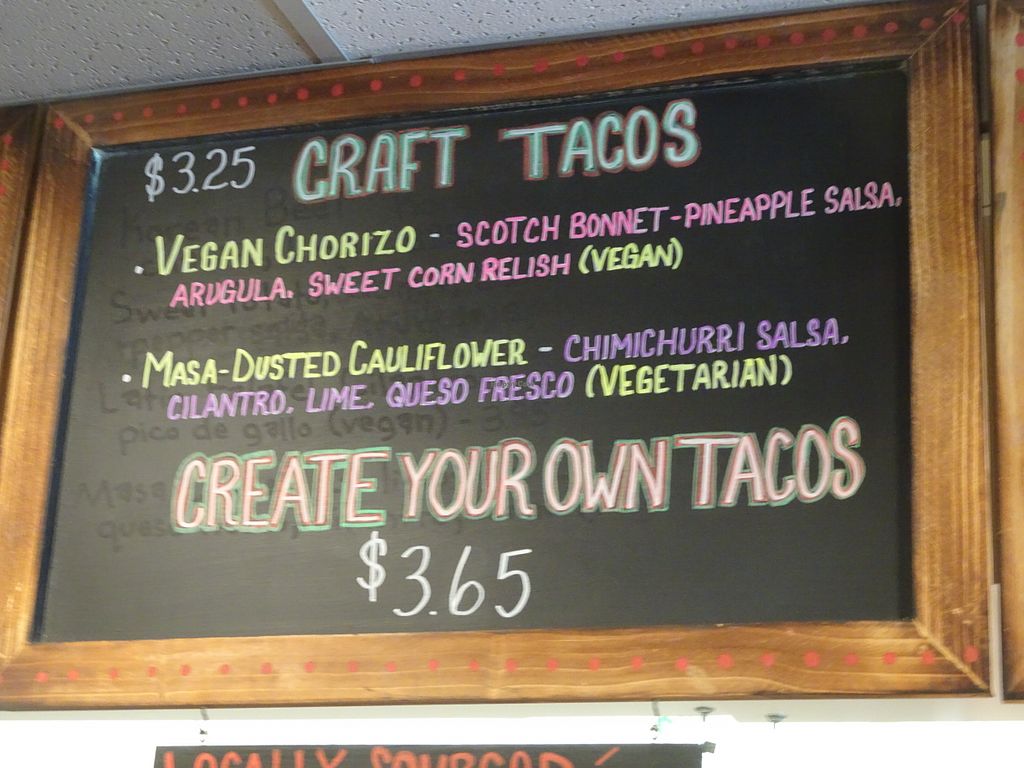 $3.25 CRAFT TACOS
. VEGAN CHORIZO - SCOTCH BONNET-PINEAPPLE SALSA,
ARUGULA, SWEET CORN RELISH (VEGAN)
. MASA-DUSTED CAULIFLOWER - CHIMICHURRI SALSA,
CILANTRO, LIME, QUESO FRESCO (VEGETARIAN)
pico de gallo (vegan) - 3.95
CREATE YOUR OWN TACOS
$3.65
LOCALLY SOURCED